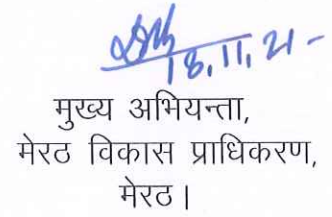 18.11.21-
मुख्य अभियन्ता,
मेरठ विकास प्राधिकरण,
मेरठ।